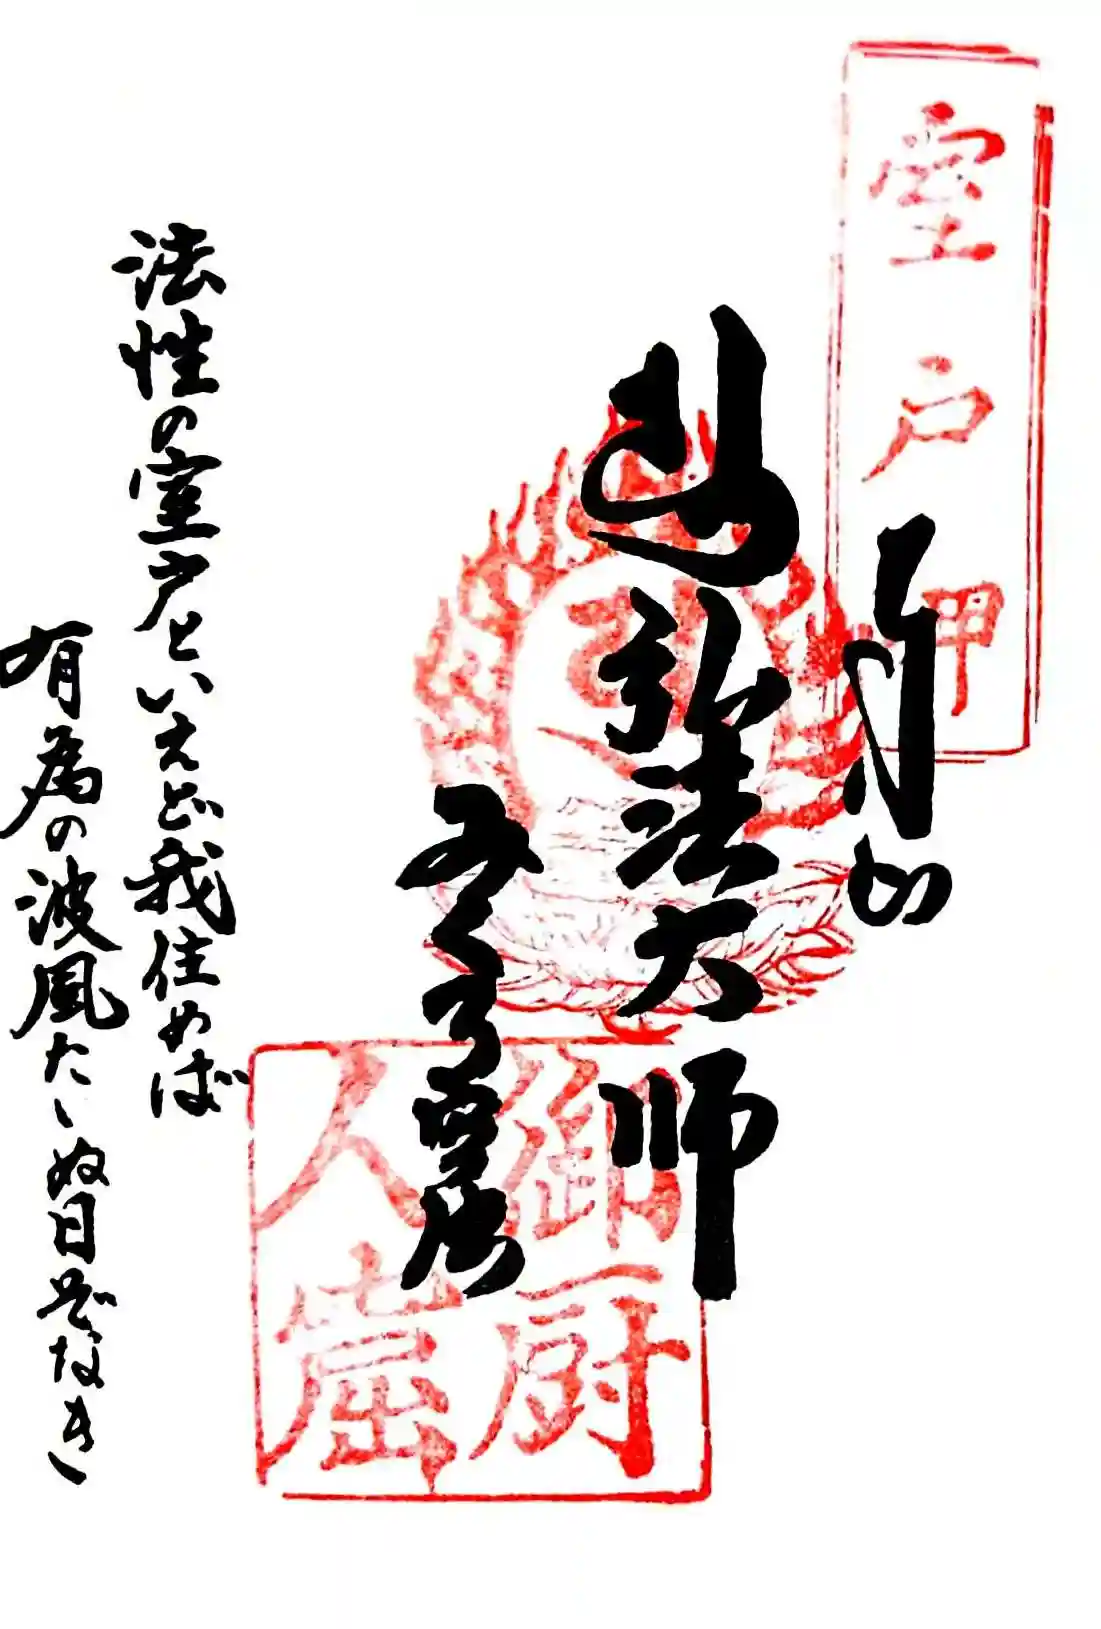 室戸岬
奉拝
弘法大師
みくろ窟
御厨人窟
法性の室戸といえど我住めば
有為の波風たゝぬ日ぞなき